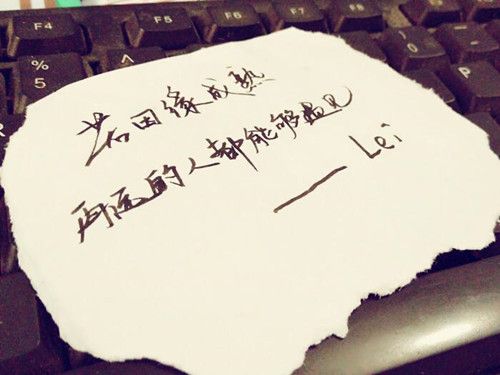 F4
F5
F6
F7
F8
%
5
^
若因緣成熟
再远的人都能够遇见
—— Lei
P